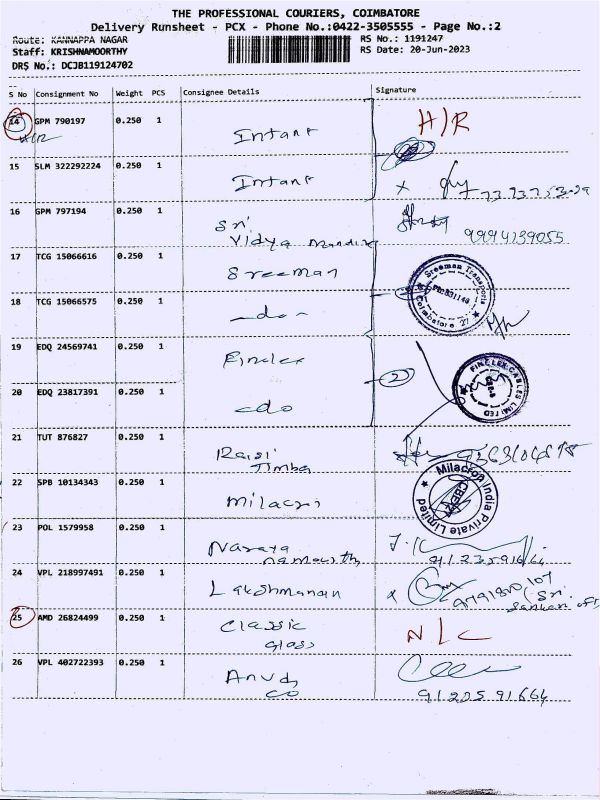 THE PROFESSIONAL COURIERS, COIMBATORE
Delivery Runsheet - PCX - Phone No.:0422-3505555 - Page No.:2
Route: KANNAPPA NAGAR
RS No.: 1191247
Staff: KRISHNAMOORTHY
RS Date: 20-Jun-2023
DRS No.: DCJB119124702
S No Consignment No Weight PCS Consignee Details Signature
14 GPM 790197 0.250 1 Intant H/R
H/R
15 SLM 322292224 0.250 1 Intant x
16 GPM 797194 0.250 1 Sri
Vidya Mandir 9994139055
17 TCG 15066616 0.250 1 Sreeman
Sreeman Transports
Coimbatore
18 TCG 15066575 0.250 1 -do-
19 EDQ 24569741 0.250 1 Finolex
20 EDQ 23817391 0.250 1 -do 2
FINOLEX CABLES LIMITED
21 TUT 876827 0.250 1
Timba
22 SPB 10134343 0.250 1 Milacri
Milacron India Private Limited
CBE
23 POL 1579958 0.250 1 Naraya
namourthy
24 VPL 218997491 0.250 1 Lakshmanan x
25 AMD 26824499 0.250 1 Classic N/C
glass
26 VPL 402722393 0.250 1
co 9122591664